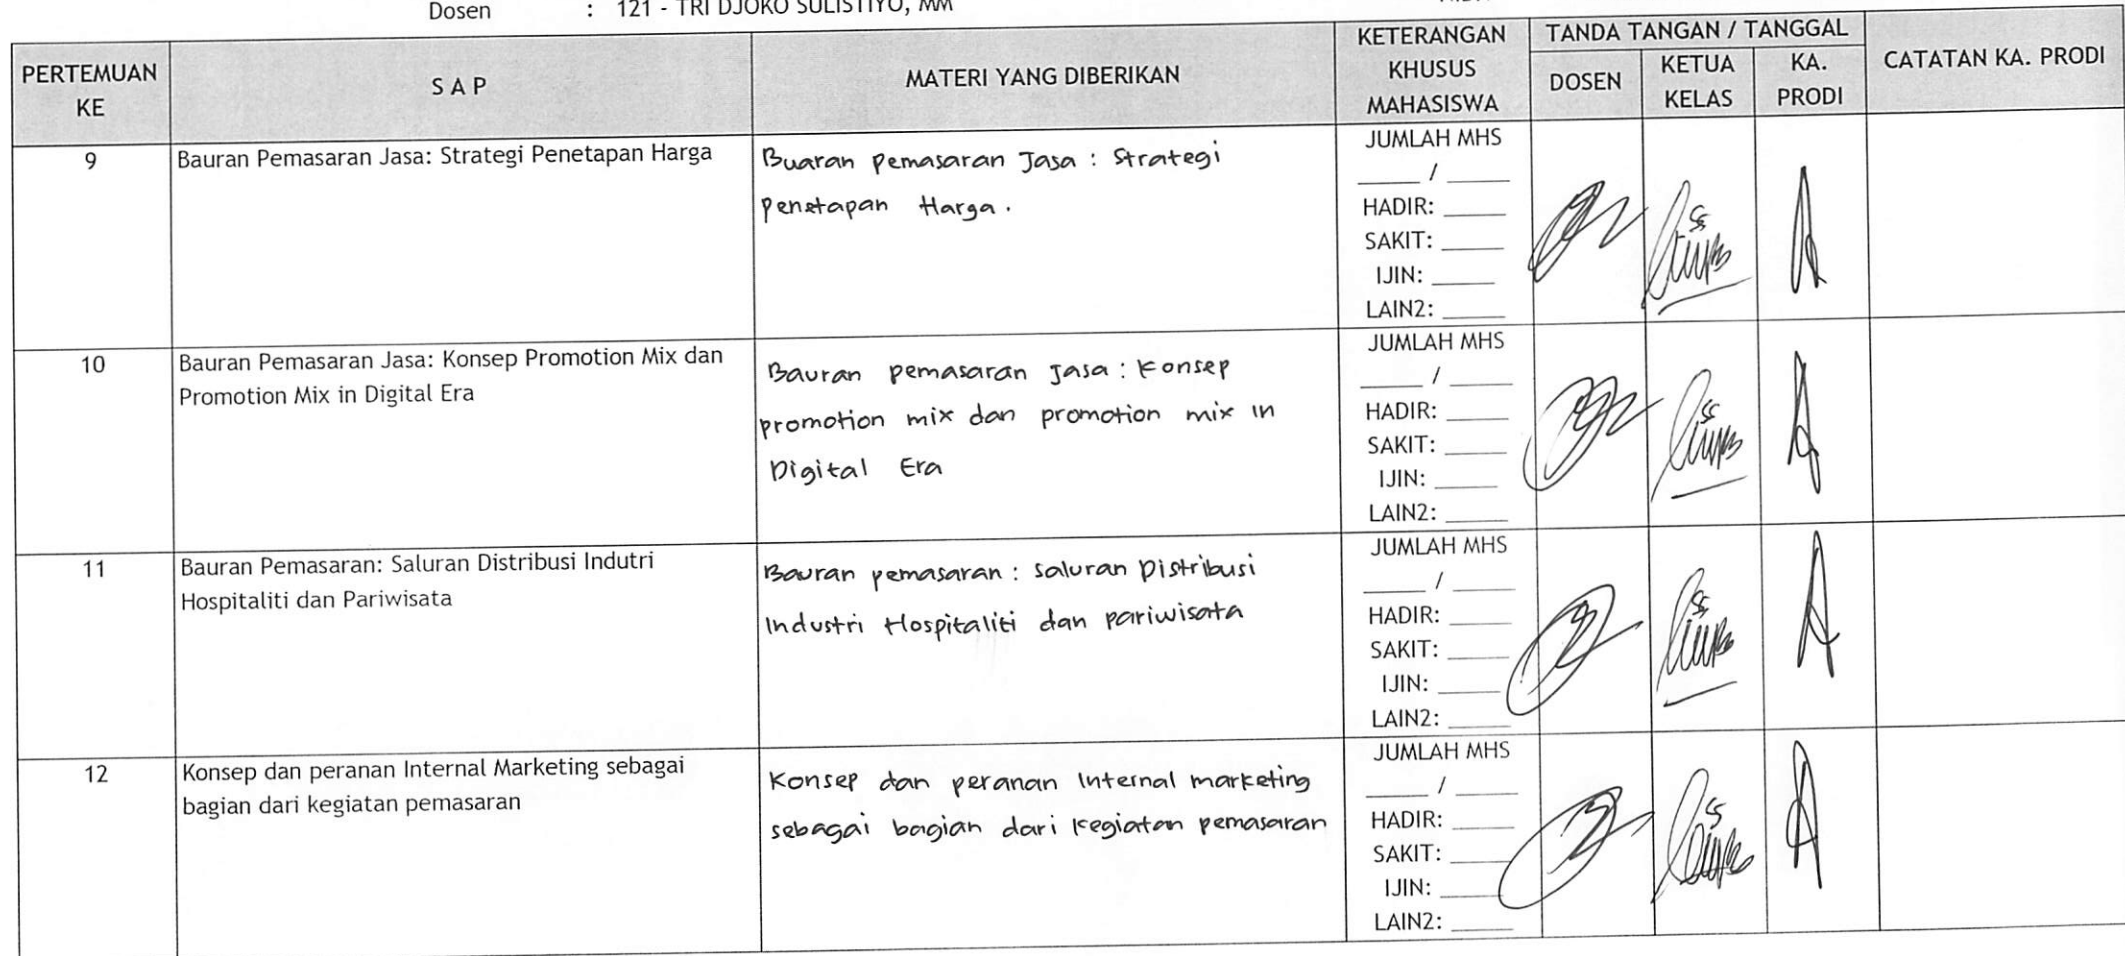 Dosen : 121 - TRI DJOKO SULISTIYO, MM
PERTEMUAN KE
S A P
MATERI YANG DIBERIKAN
KETERANGAN KHUSUS MAHASISWA
TANDA TANGAN / TANGGAL
DOSEN
KETUA KELAS
KA. PRODI
CATATAN KA. PRODI
9
Bauran Pemasaran Jasa: Strategi Penetapan Harga
Buaran pemasaran Jasa : Strategi
penetapan Harga.
JUMLAH MHS
____ / ____
HADIR: ____
SAKIT: ____
IJIN: ____
LAIN2: ____
10
Bauran Pemasaran Jasa: Konsep Promotion Mix dan
Promotion Mix in Digital Era
Bauran pemasaran Jasa : Konsep
promotion mix dan promotion mix in
Digital Era
JUMLAH MHS
____ / ____
HADIR: ____
SAKIT: ____
IJIN: ____
LAIN2: ____
11
Bauran Pemasaran: Saluran Distribusi Indutri
Hospitaliti dan Pariwisata
Bauran pemasaran : saluran Distribusi
Industri Hospitaliti dan pariwisata
JUMLAH MHS
____ / ____
HADIR: ____
SAKIT: ____
IJIN: ____
LAIN2: ____
12
Konsep dan peranan Internal Marketing sebagai
bagian dari kegiatan pemasaran
Konsep dan peranan Internal marketing
sebagai bagian dari kegiatan pemasaran
JUMLAH MHS
____ / ____
HADIR: ____
SAKIT: ____
IJIN: ____
LAIN2: ____